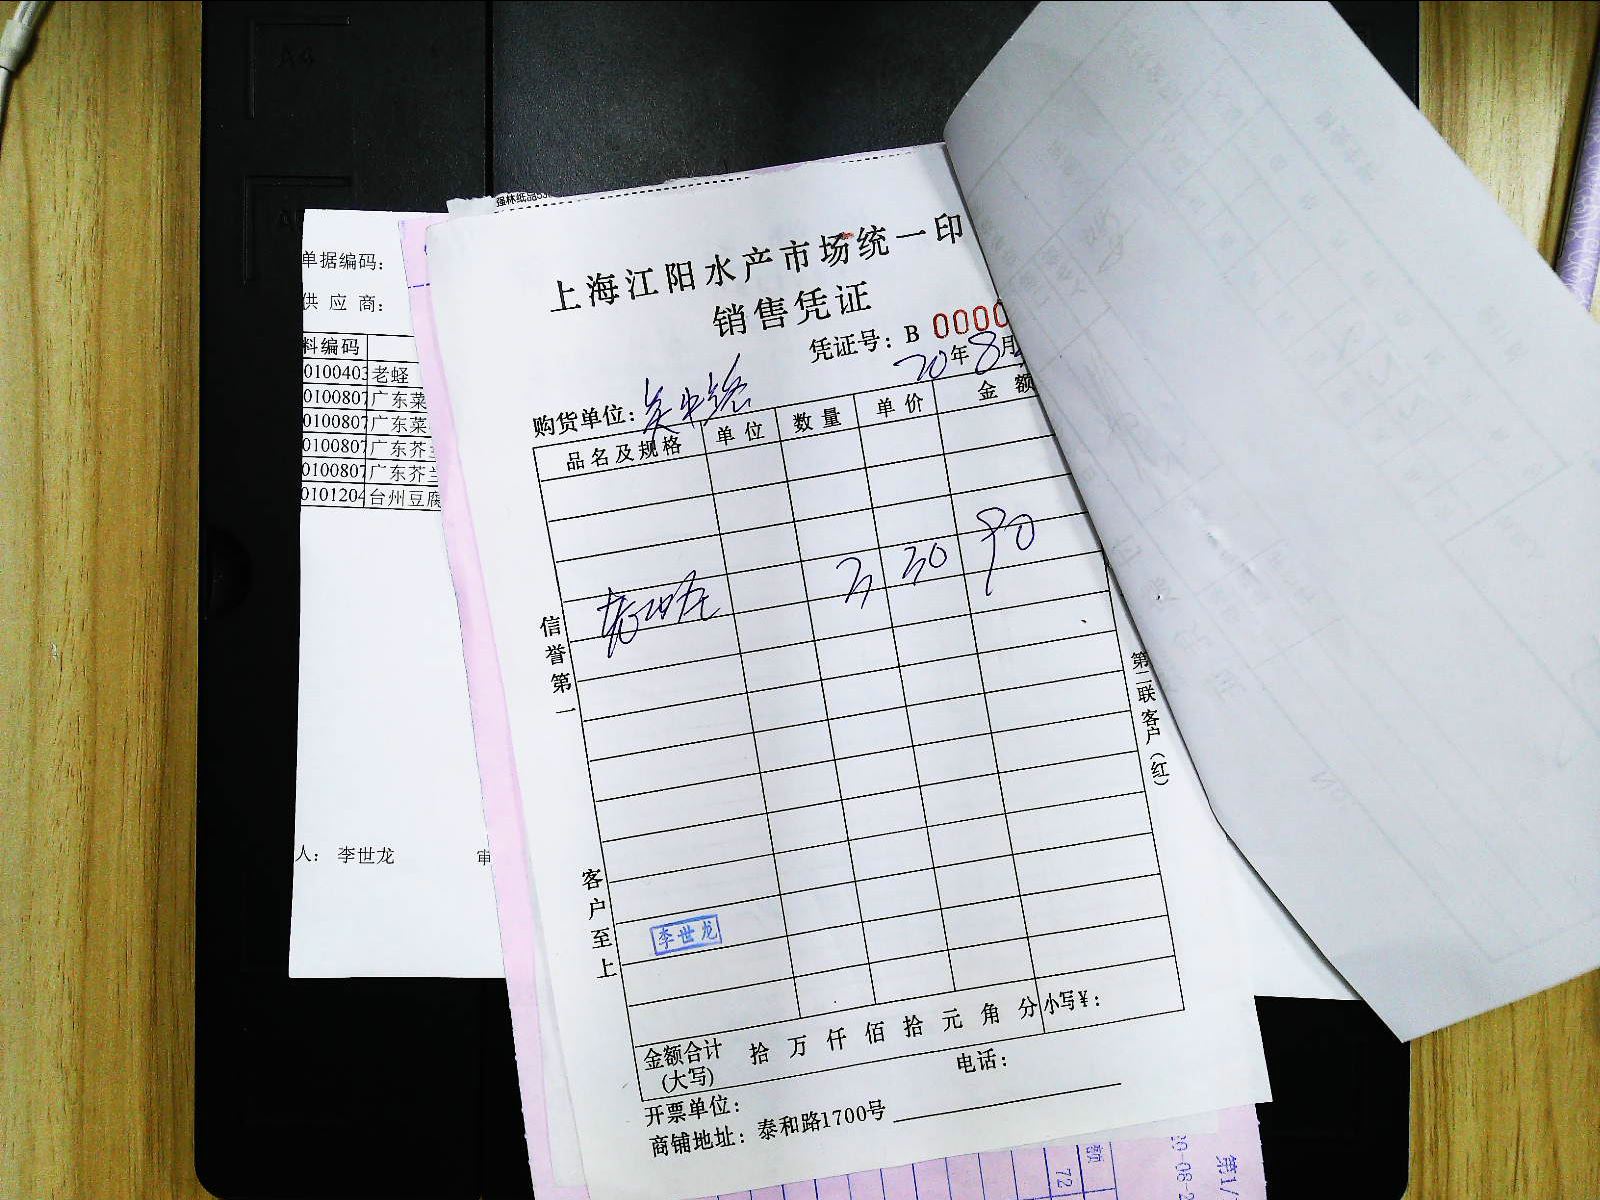 强林纸品
上海江阳水产市场统一印
销售凭证
凭证号：B 0000
20年8月
购货单位：
品名及规格 单位 数量 单价 金额
3 30 90
信誉第一
客户至上
第二联客户（红）
李世龙
金额合计（大写） 拾 万 仟 佰 拾 元 角 分 小写¥：
开票单位： 电话：
商铺地址：泰和路1700号
单据编码：
供应商：
料编码
0100403 老蛏
0100807 广东菜
0100807 广东菜
0100807 广东芥
0100807 广东芥兰
0101204 台州豆腐
人： 李世龙 审
额
72
第1/